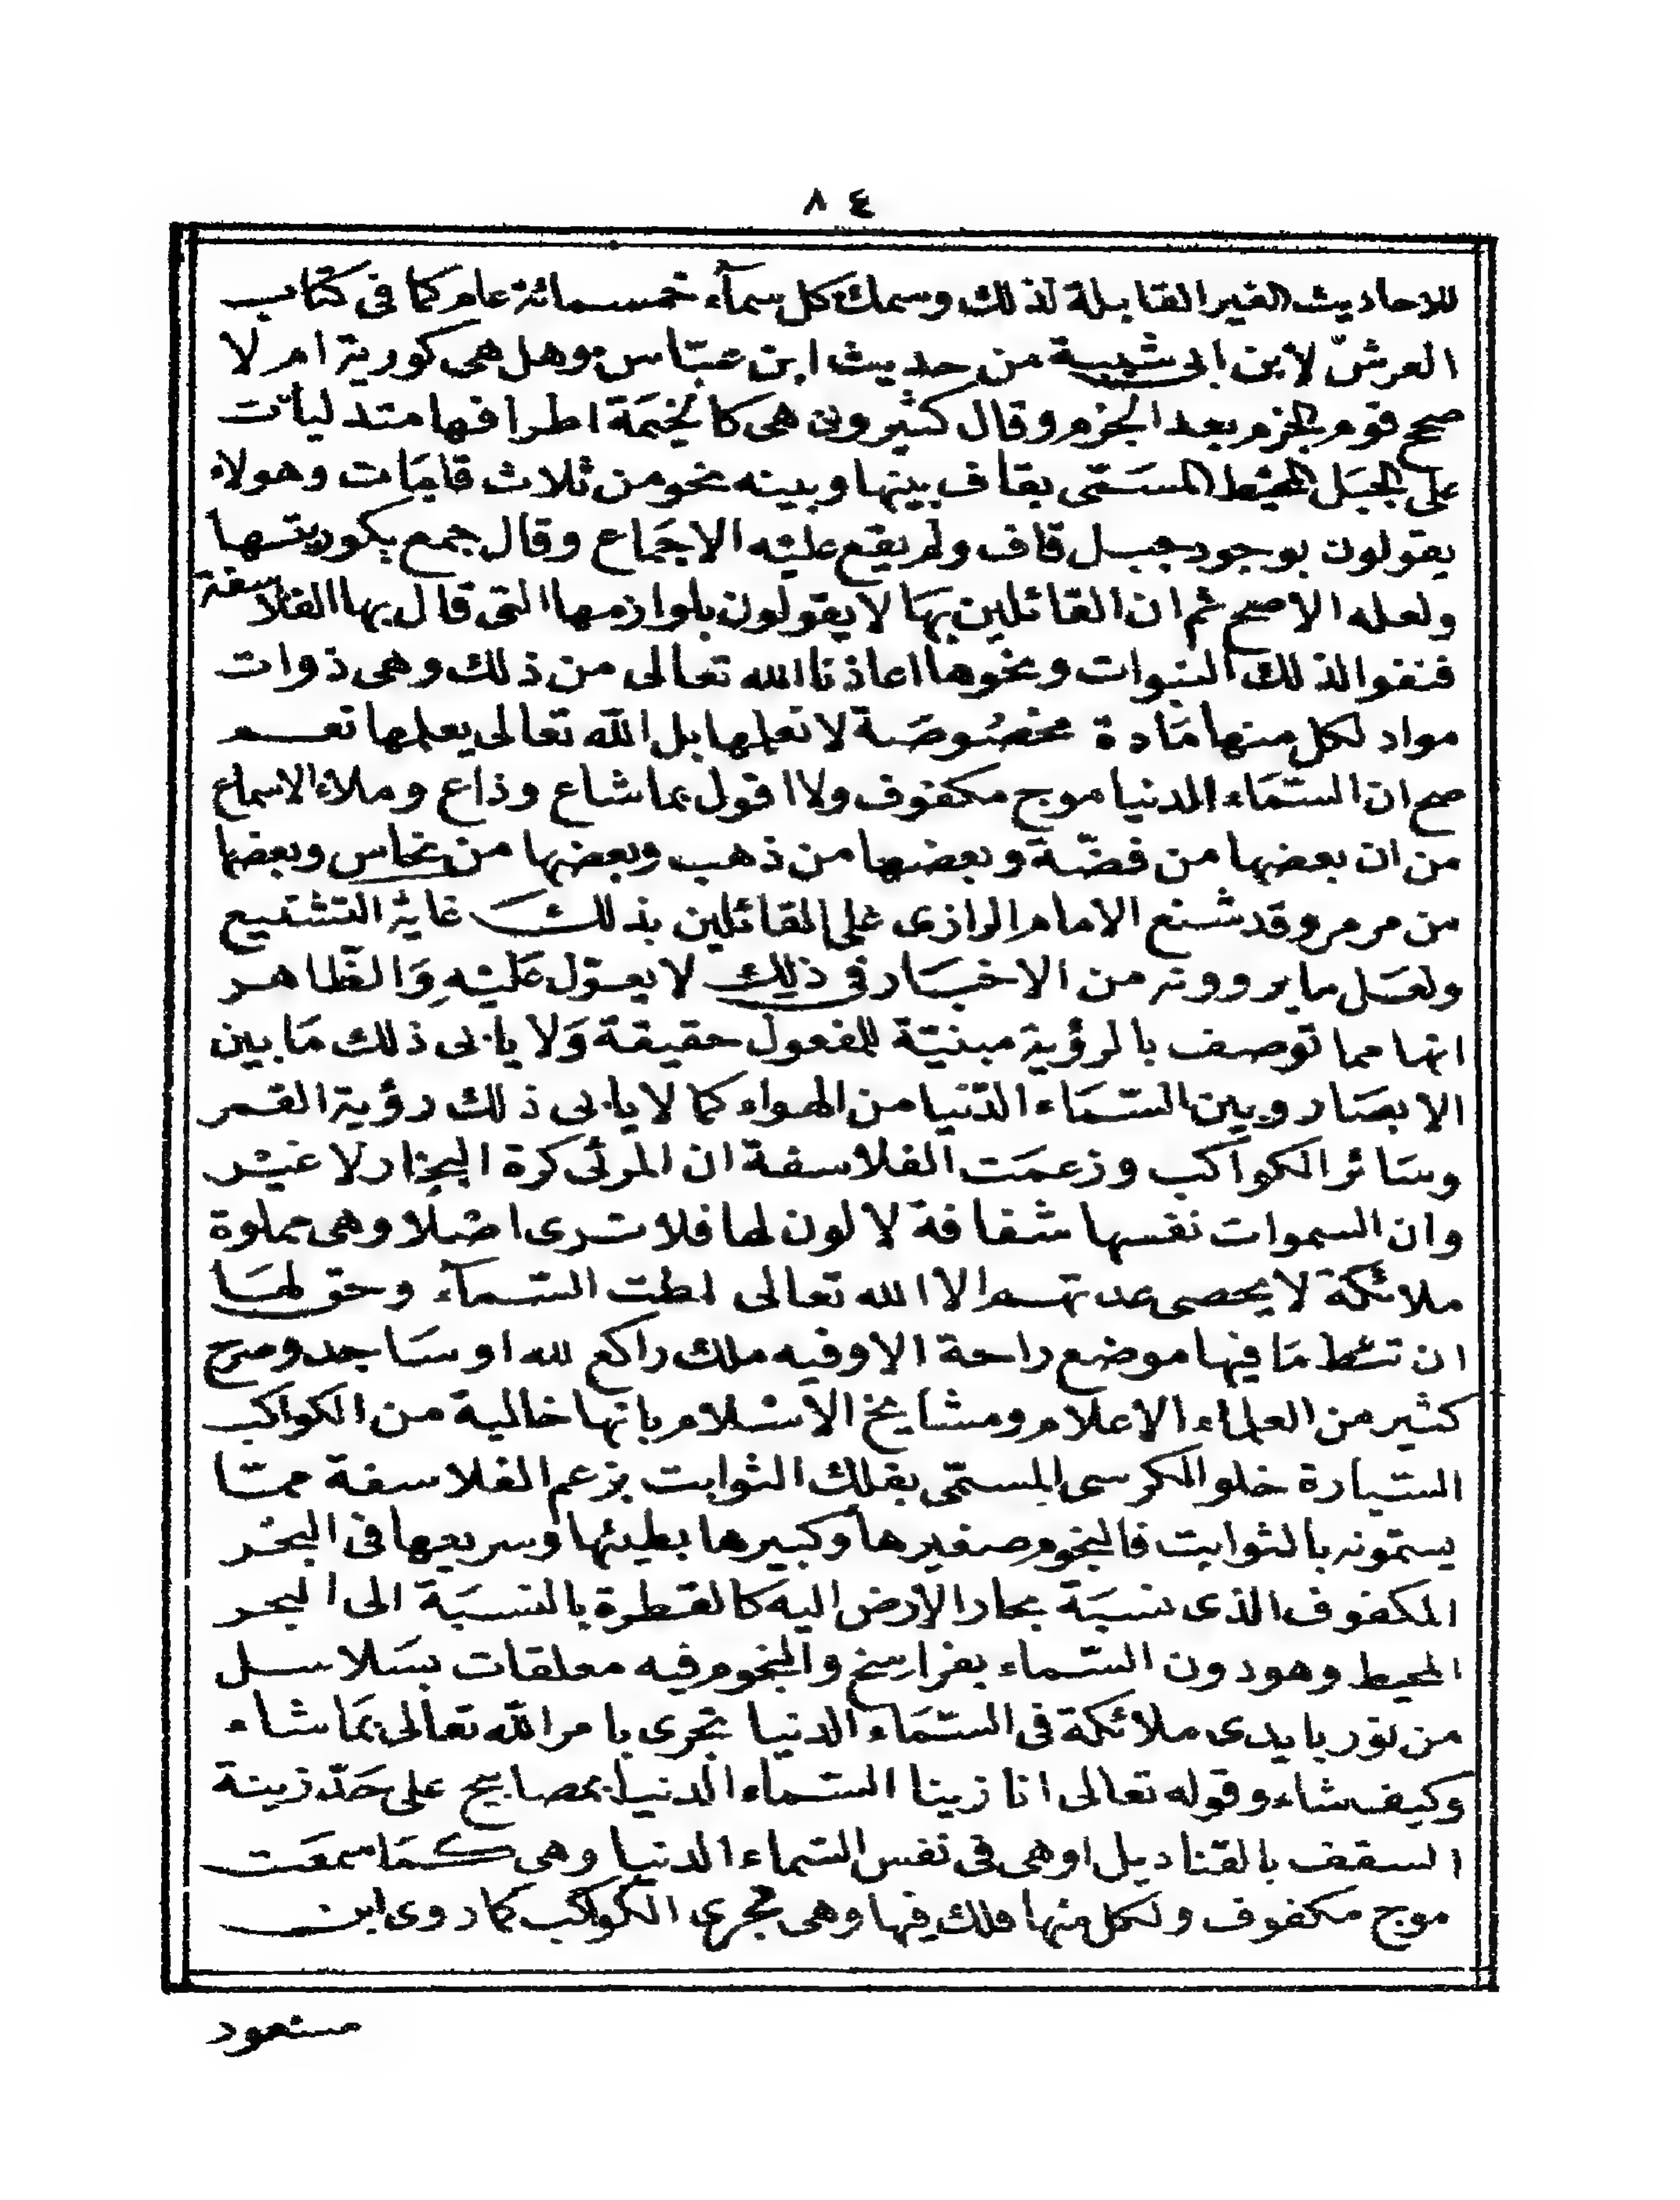 ٨٤
للاحاديث الغير القابلة لذلك وسمك كل سمآء خمسمائة عام كما في كتاب
العرش لابن ابي شيبة من حديث ابن عباس وهل هي كورية ام لا
صحح قوم بالجزم بعد الجزم وقال كثيرون هي كالخيمة اطرافها متدليات
على الجبل المحيط المسمى بقاف بينها وبينه نحو من ثلاث قامات وهولاء
يقولون بوجود جبل قاف ولم يقع عليه الاجماع وقال جمع بكوريتها
ولعله الاصح ثم ان القائلين بها لا يقولون بلوازمها التي قال بها الفلاسفة
فنفوا لذلك النبوات ونحوها اعاذنا الله تعالى من ذلك وهي ذوات
مواد لكل منها مادة مخصوصة لا نعلمها بل الله تعالى يعلمها نعم
صح ان السماء الدنيا موج مكفوف ولا اقول بما شاع وذاع وملاء الاسماع
من ان بعضها من فضة وبعضها من ذهب وبعضها من نحاس وبعضها
من مرمر وقد شنع الامام الرازى على القائلين بذلك غاية التشنيع
ولعل ما يروونه من الاخبار في ذلك لا يعول عليه والظاهر
انها مما توصف بالرؤية مبنية للمفعول حقيقة ولا يابى ذلك ما بين
الابصار وبين السماء الدنيا من الهواء كما لا يابى ذلك رؤية القمر
وسائر الكواكب وزعمت الفلاسفة ان المرئى كرة البخار لا غير
وان السموات نفسها شفافة لا لون لها فلا ترى اصلا وهى مملوة
ملائكة لا يحصى عدتهم الا الله تعالى اطت السمآء وحق لها
ان تئط ما فيها موضع راحة الا وفيه ملك راكع لله او ساجد وصرح
كثير من العلماء الاعلام ومشايخ الاسلام بانها خالية من الكواكب
السيارة خلو الكرسى المسمى بفلك الثوابت بزعم الفلاسفة مما
يسمونه بالثوابت فالنجوم صغيرها وكبيرها بطيئها وسريعها فى البحر
المكفوف الذى نسبة بحار الارض اليه كالقطرة بالنسبة الى البحر
المحيط وهو دون السماء بفراسخ والنجوم فيه معلقات بسلاسل
من نور بايدى ملائكة فى السماء الدنيا تجرى بامر الله تعالى بما شاء
وكيف شاء وقوله تعالى انا زينا السماء الدنيا بمصابيح على حد زينة
السقف بالقناديل او هى فى نفس السماء الدنيا وهى كما سمعت
موج مكفوف ولكل منها فلك فيها وهى مجرى الكواكب كما روى ابن
مسعود